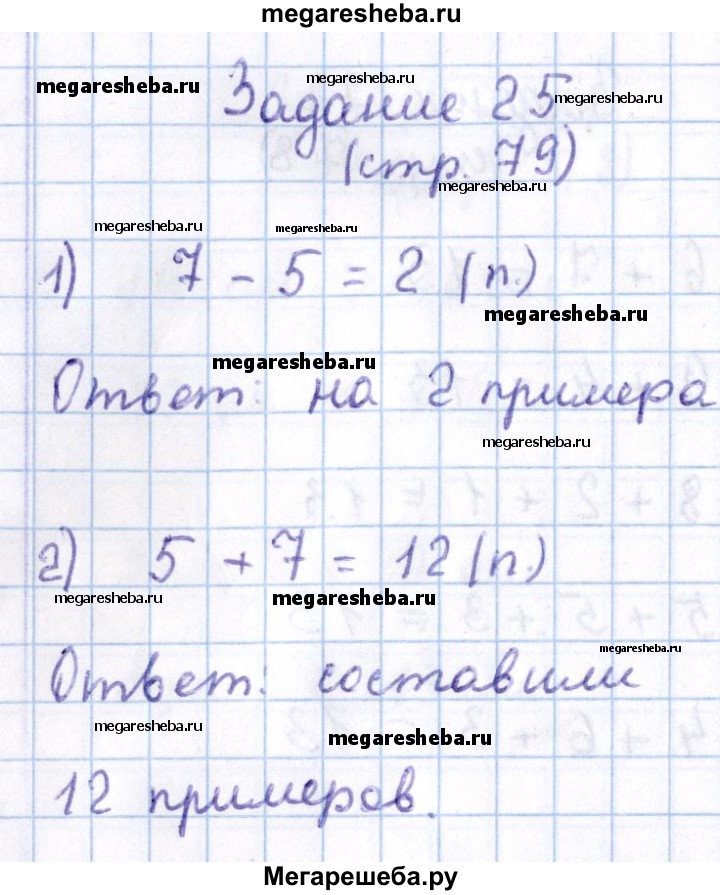 megaresheba.ru
megaresheba.ru
megaresheba.ru
Задание 25
megaresheba.ru
(стр. 79)
megaresheba.ru
megaresheba.ru
megaresheba.ru
1) 7 - 5 = 2 (п.)
megaresheba.ru
megaresheba.ru
Ответ: на 2 примера
megaresheba.ru
8 + 2 + 1 = 13
2) 5 + 7 = 12 (п.)
megaresheba.ru
megaresheba.ru
megaresheba.ru
Ответ: составили
megaresheba.ru
megaresheba.ru
12 примеров.
Мегарешеба.ру